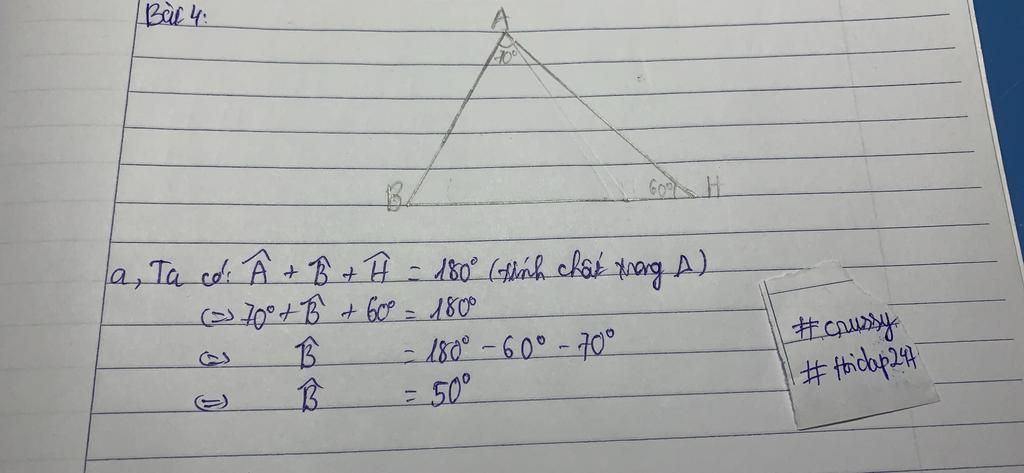 Bài 4:
A
70°
B
60°
H
a, Ta có: Â + B̂ + Ĥ = 180° (tính chất trong Δ)
(=) 70° + B̂ + 60° = 180°
(=) B̂ = 180° - 60° - 70°
(=) B̂ = 50°
#cpussy
#hoidap247